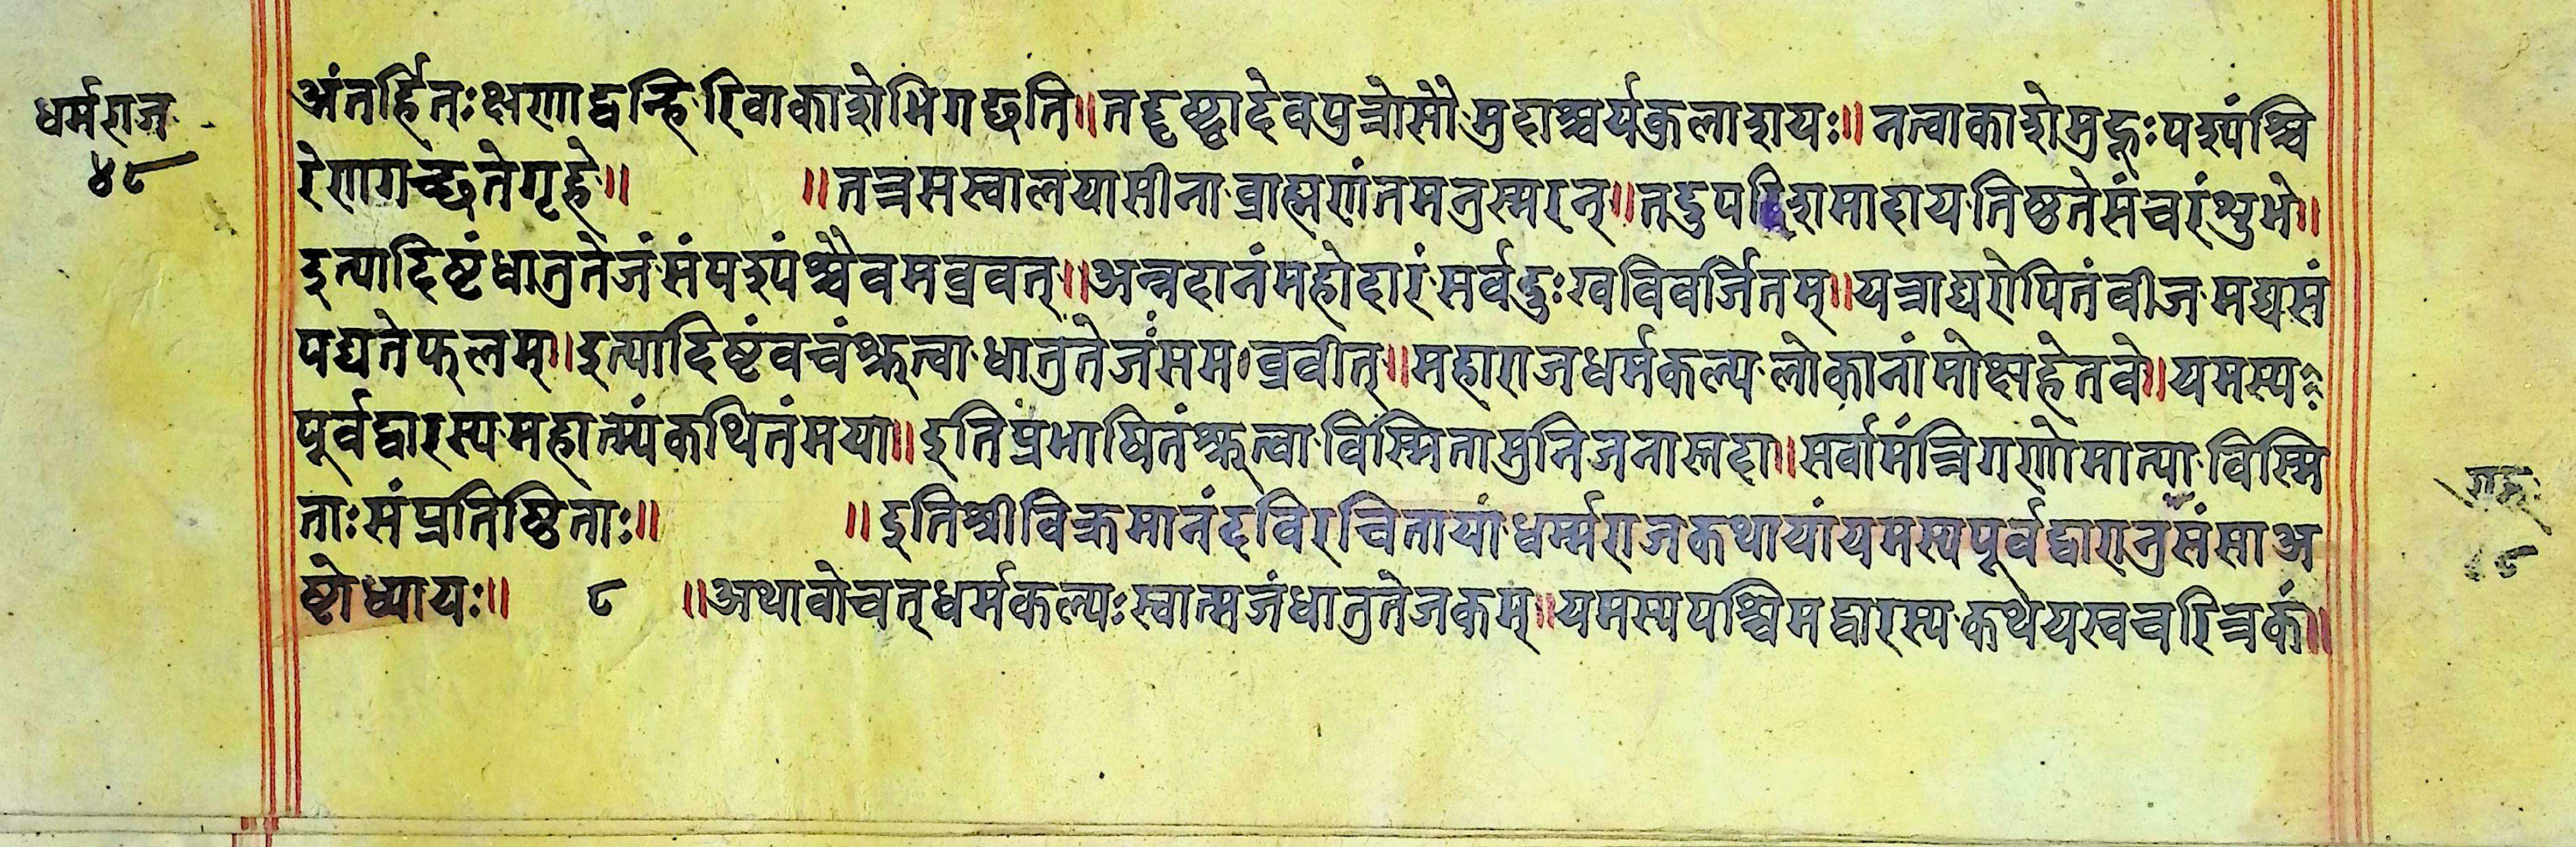 धर्मराज
४८
अंतर्हितःक्षणाद्वन्हिरिवाकाशेभिगछति॥तद्दृष्ट्वादेवपुत्रोसौमुदाश्चर्यकुलाशयः॥नत्वाकाशेमुहुःपश्यंश्चि
रेणागच्छतेगृहे॥ ॥तत्रमस्वालयासीनाब्राह्मणंतमनुस्मरन्॥तदुपदिशमादायतिष्ठतेसंचरंशुभे॥
इत्यादिष्टंधातुतेजंसंपश्यंश्चैवमब्रवत्॥अन्नदानंमहोदारंसर्वदुःखविवर्जितम्॥यत्राद्यरोपितंवीजमद्यसं
पद्यतेफलम्॥इत्यादिष्टंवचंश्रुत्वाधातुतेजंसमब्रवीत्॥महाराजधर्मकल्पलोकानांमोक्षहेतवे॥यमस्य
पूर्वद्वारस्यमहात्म्यंकथितंमया॥इतिप्रभाषितंश्रुत्वाविस्मितामुनिजनास्तदा॥सर्वामंत्रिगणोमात्याविस्मि
ताःसंप्रतिष्ठिताः॥ ॥इतिश्रीविक्रमानंदविरचितायांधर्म्मराजकथायांयमस्यपूर्वद्वारानुसंसाअ
ष्टोध्यायः॥ ८ ॥अथावोचत्धर्मकल्पःस्वात्मजंधातुतेजकम्॥यमस्यपश्चिमद्वारस्यकथेयस्वचरित्रकं॥